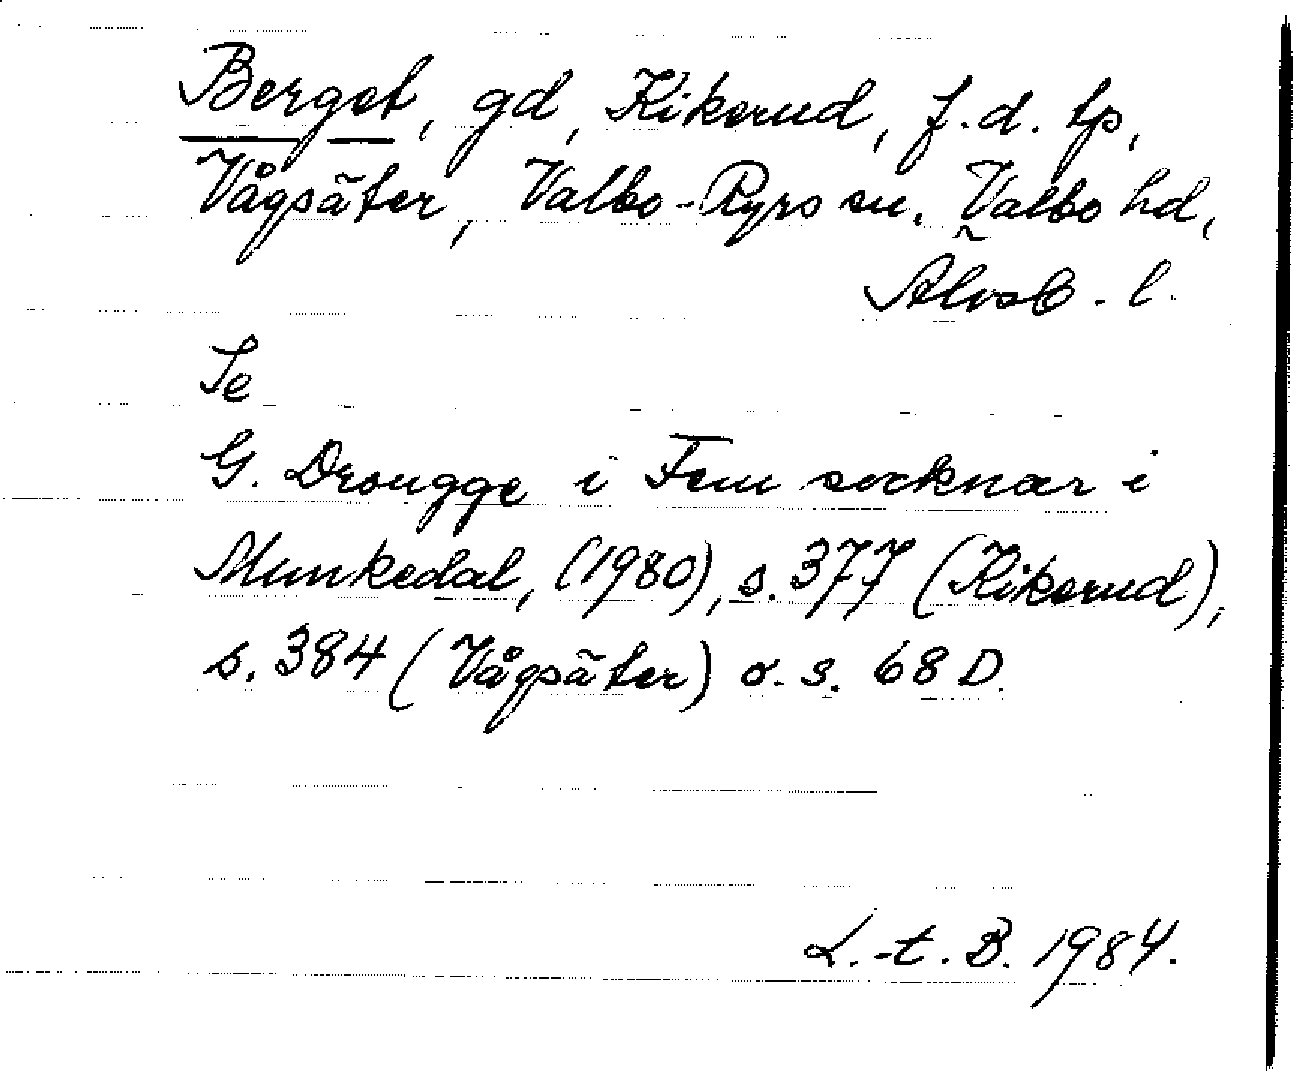 Berget, gd, Kikerud, f.d. tp,
Vågsäter, Valbo-Ryrs sn, Valbo hd,
Älvsb. l.
Se
G. Drougge i Fem socknar i
Munkedal, (1980), s. 377 (Kikerud),
s. 384 (Vågsäter) o. s. 68 D.
L.-t. B. 1984.